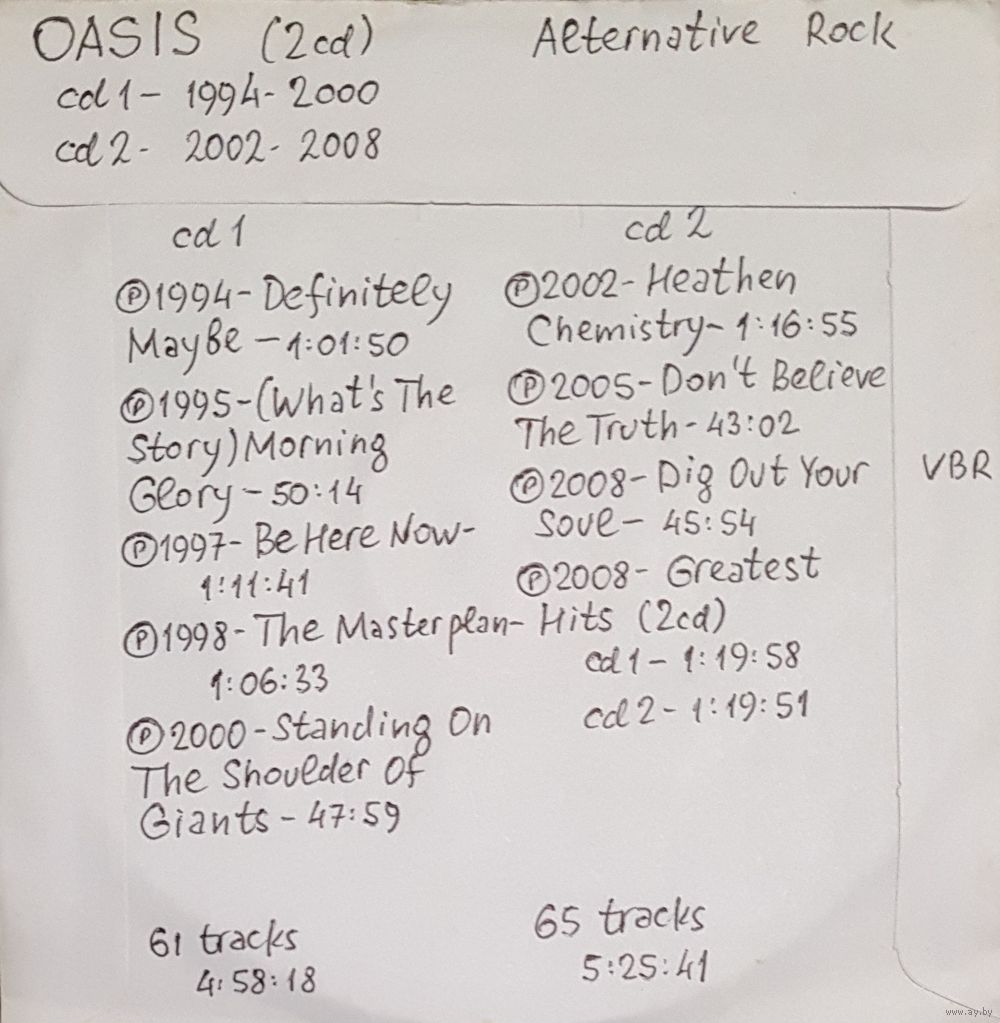 OASIS (2cd) Alternative Rock
cd1 - 1994-2000
cd2 - 2002-2008
cd 1
Ⓟ1994-Definitely
MayBe - 1:01:50
Ⓟ1995-(What's The
Story) Morning
Glory - 50:14
Ⓟ1997-Be Here Now-
1:11:41
Ⓟ1998-The Masterplan-
1:06:33
Ⓟ2000-Standing On
The Shoulder Of
Giants - 47:59
61 tracks
4:58:18
cd 2
Ⓟ2002-Heathen
Chemistry- 1:16:55
Ⓟ2005-Don't Believe
The Truth-43:02
Ⓟ2008-Dig Out Your
Soul - 45:54
Ⓟ2008- Greatest
Hits (2cd)
cd1 - 1:19:58
cd2 - 1:19:51
65 tracks
5:25:41
VBR
www.ay.by